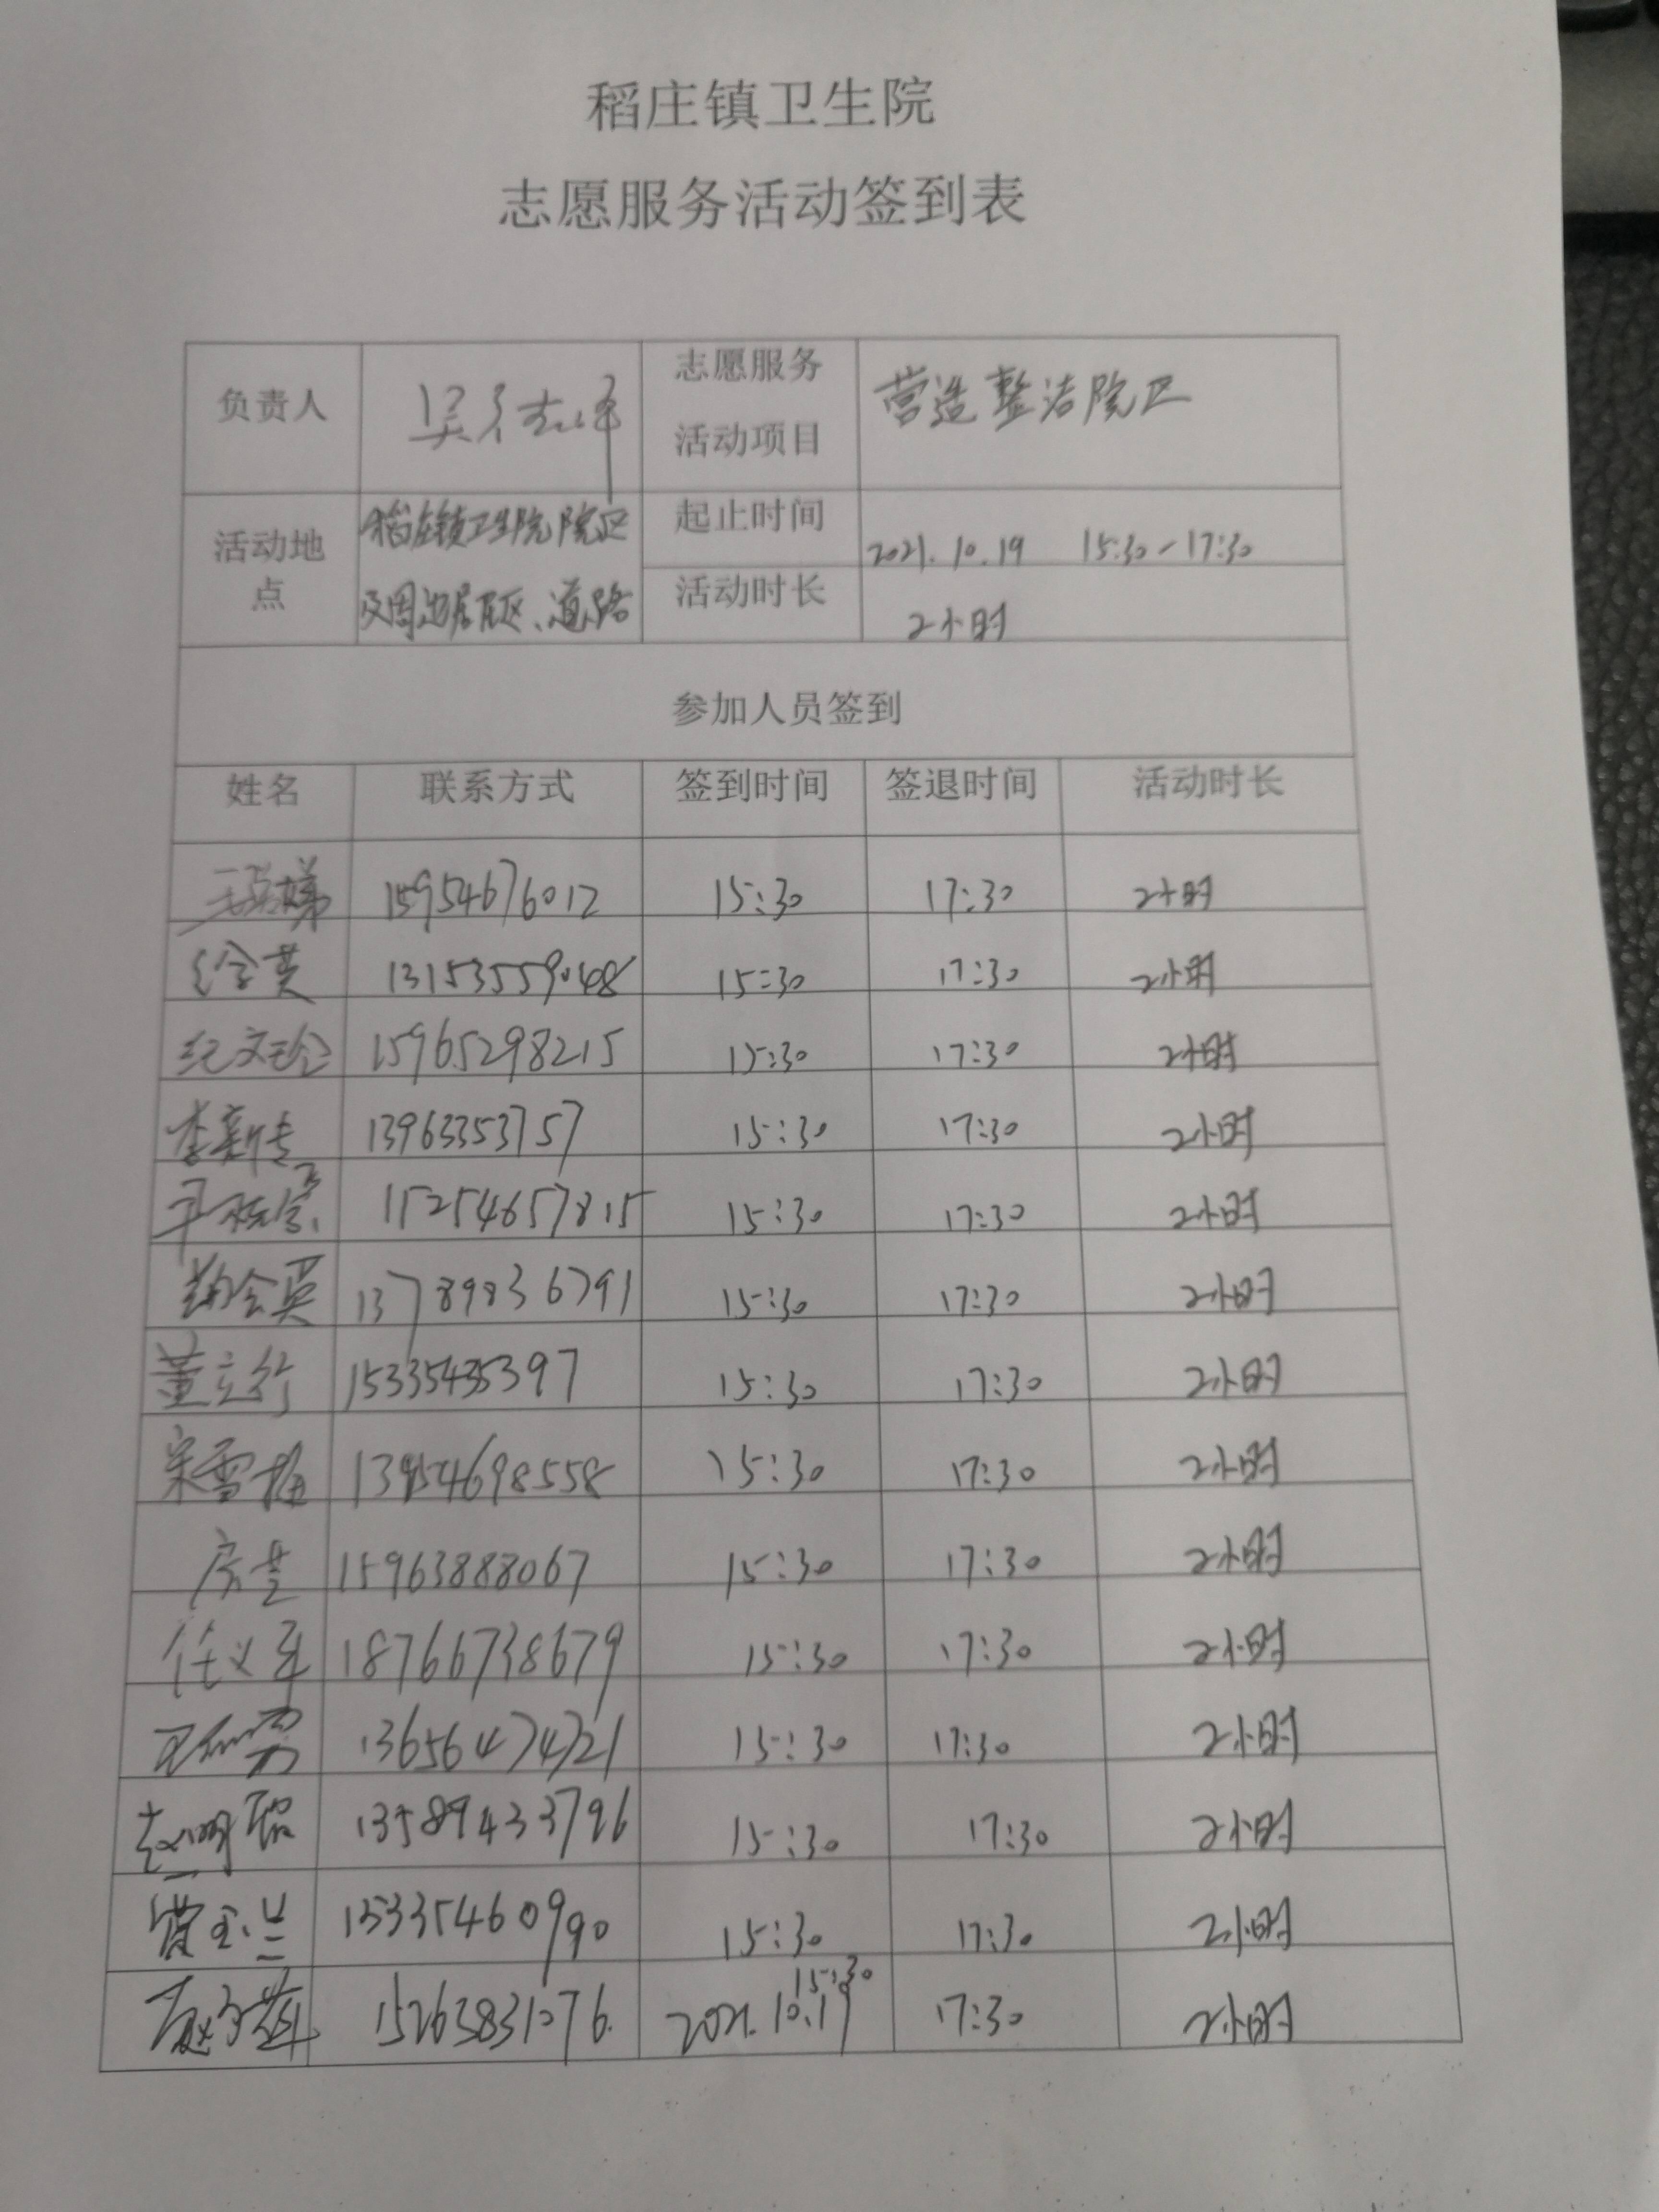 稻庄镇卫生院
志愿服务活动签到表
负责人 志愿服务 活动项目 营造整洁院区
活动地点 稻庄镇卫生院院区 起止时间 2021.10.19 15:30-17:30
及周边居民区、道路 活动时长 2小时
参加人员签到
姓名 联系方式 签到时间 签退时间 活动时长
15954676012 15:30 17:30 2小时
徐英 13153559048 15:30 17:30 2小时
纪文珍 15965298215 15:30 17:30 2小时
李新 13963353757 15:30 17:30 2小时
15254657815 15:30 17:30 2小时
金英 13789836791 15:30 17:30 2小时
董立行 15335435397 15:30 17:30 2小时
宋雪梅 13954698558 15:30 17:30 2小时
房兰 15963888067 15:30 17:30 2小时
任义军 18766738679 15:30 17:30 2小时
13656474721 15:30 17:30 2小时
赵明 13589433796 15:30 17:30 2小时
曹玉兰 15:30 17:30 2小时
15263831076 2021.10.19 15:30 17:30 2小时